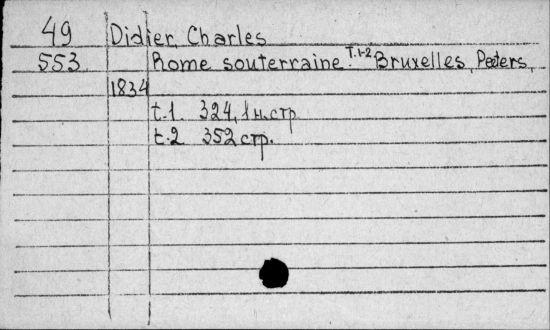 49 Didier, Charles
553 Rome souterraine. T.1-2 Bruxelles, Peeters,
1834
t.1. 324, 1 н.стр
t.2 352 стр.